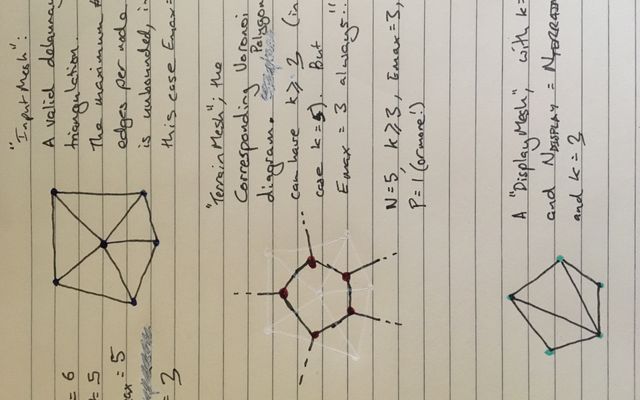 "Input Mesh":
A valid delaunay
triangulation.
The maximum #
edges per node
is unbounded, in
this case Emax =
= 6
= 5
max = 5
= 3
"Terrain Mesh", the
Corresponding Voronoi
Polygon
diagram.
can have k ≥ 3 (in
case k = 5). But
Emax = 3 always..."
N = 5, k ≥ 3, Emax = 3,
P = 1 (or more!)
A "Display Mesh", with k =
and NDISPLAY = NTERRAIN
and k = 3